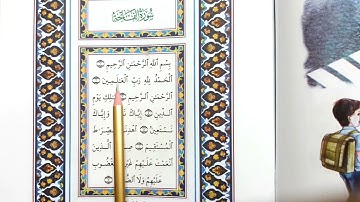 سُورَةُ الْفَاتِحَةِ
بِسْمِ اللَّهِ الرَّحْمَٰنِ الرَّحِيمِ
الْحَمْدُ لِلَّهِ رَبِّ الْعَالَمِينَ
الرَّحْمَٰنِ الرَّحِيمِ مَالِكِ يَوْمِ
الدِّينِ إِيَّاكَ وَإِيَّاكَ
نَسْتَعِينُ اهْدِنَا الصِّرَاطَ
الْمُسْتَقِيمَ الَّذِينَ
أَنْعَمْتَ عَلَيْهِمْ غَيْرِ الْمَغْضُوبِ
عَلَيْهِمْ وَلَا